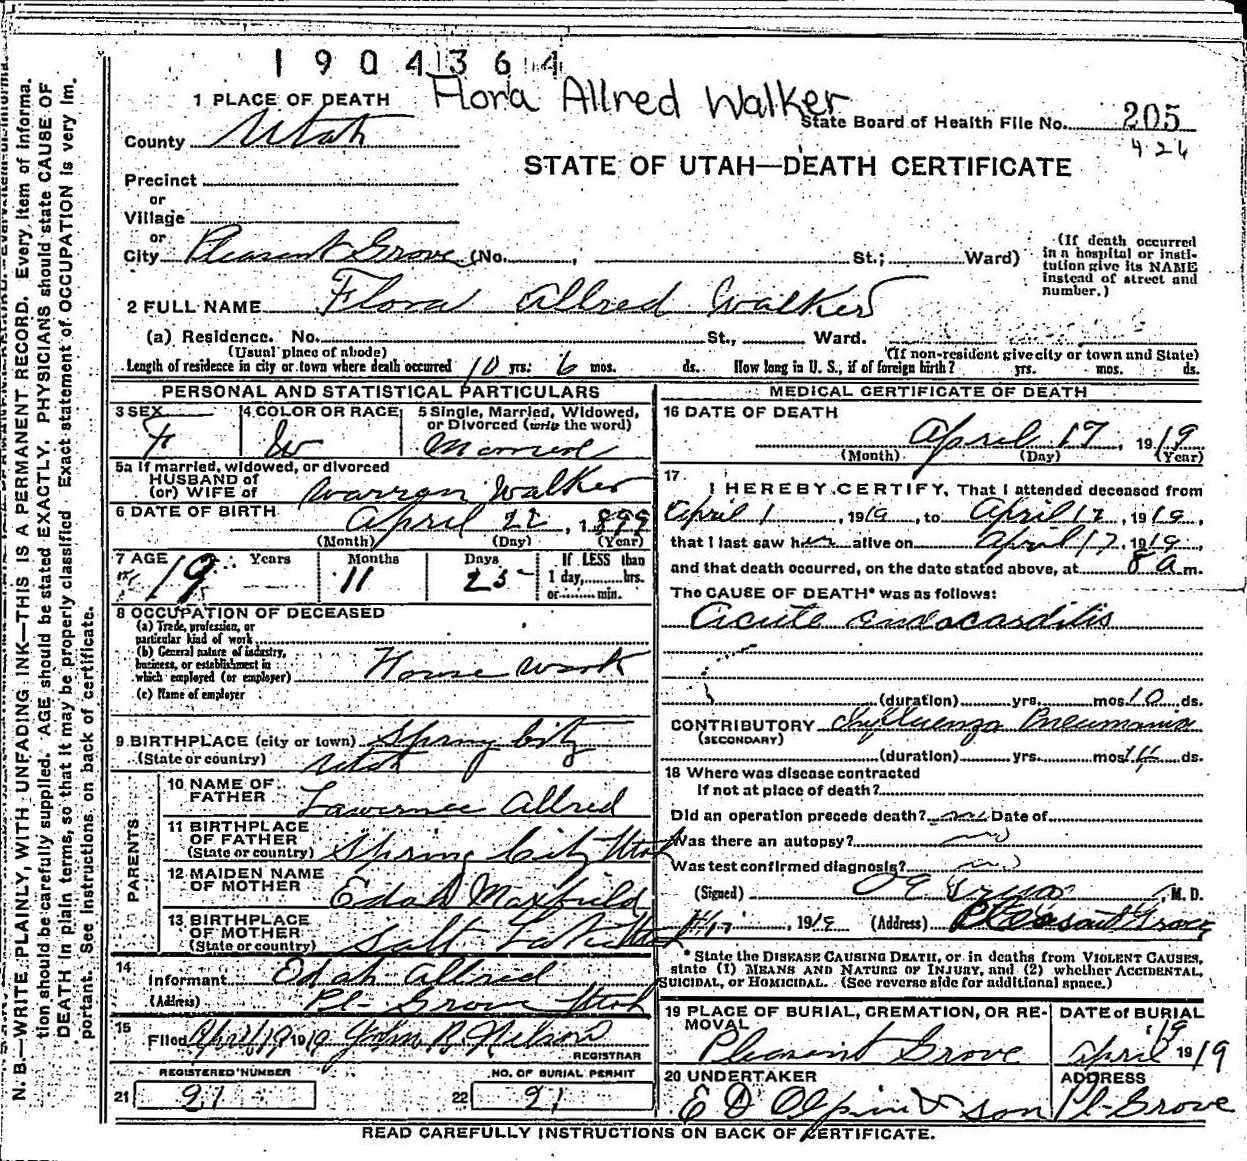 1904364
Flora Allred Walker
1 PLACE OF DEATH
State Board of Health File No. 205
426
County Utah
STATE OF UTAH—DEATH CERTIFICATE
Precinct
or
Village
or
City Pleasant Grove (No. , St.; Ward)
(If death occurred in a hospital or insti-
tution give its NAME instead of street and number.)
2 FULL NAME Flora Allred Walker
(a) Residence. No. St., Ward.
(Usual place of abode) (If non-resident give city or town and State)
Length of residence in city or town where death occurred 10 yrs. 6 mos. ds. How long in U. S., if of foreign birth? yrs. mos. ds.
PERSONAL AND STATISTICAL PARTICULARS
3 SEX F
4 COLOR OR RACE W
5 Single, Married, Widowed, or Divorced (write the word) Married
5a If married, widowed, or divorced
HUSBAND of
(or) WIFE of Warren Walker
6 DATE OF BIRTH April 22, 1899
(Month) (Day) (Year)
7 AGE 19 Years 11 Months 25 Days
If LESS than 1 day, hrs. or min.
8 OCCUPATION OF DECEASED
(a) Trade, profession, or particular kind of work
(b) General nature of industry, business, or establishment in which employed (or employer) House work
(c) Name of employer
9 BIRTHPLACE (city or town) Spring City
(State or country) Utah
PARENTS
10 NAME OF FATHER Lawernce Allred
11 BIRTHPLACE OF FATHER (State or country) Spring City Utah
12 MAIDEN NAME OF MOTHER Edah Maxfield
13 BIRTHPLACE OF MOTHER (State or country) Salt Lake Utah
14 Informant Edah Allred
(Address) Pl- Grove Utah
15 Filed April 19 1919 John R Nelson
REGISTRAR
REGISTERED NUMBER
21 91
NO. OF BURIAL PERMIT
22 91
MEDICAL CERTIFICATE OF DEATH
16 DATE OF DEATH
April 17, 1919
(Month) (Day) (Year)
17 I HEREBY CERTIFY, That I attended deceased from
April 1, 1919, to April 17, 1919,
that I last saw her alive on April 17, 1919,
and that death occurred, on the date stated above, at 8 a m.
The CAUSE OF DEATH* was as follows:
Acute endocarditis
(duration) yrs. mos. 10 ds.
CONTRIBUTORY Influenza Pneumonia
(SECONDARY)
(duration) yrs. mos. 14 ds.
18 Where was disease contracted
if not at place of death?
Did an operation precede death? no Date of
Was there an autopsy? no
Was test confirmed diagnosis? no
(Signed) M. D.
4/17, 1919 (Address) Pleasant Grove
* State the DISEASE CAUSING DEATH, or in deaths from VIOLENT CAUSES,
state (1) MEANS AND NATURE OF INJURY, and (2) whether ACCIDENTAL,
SUICIDAL, or HOMICIDAL. (See reverse side for additional space.)
19 PLACE OF BURIAL, CREMATION, OR RE-
MOVAL Pleasant Grove
DATE of BURIAL
April 19 1919
20 UNDERTAKER E D Olpin & son
ADDRESS Pl- Grove
READ CAREFULLY INSTRUCTIONS ON BACK OF CERTIFICATE.
N. B.—WRITE PLAINLY, WITH UNFADING INK—THIS IS A PERMANENT RECORD. Every item of informa-
tion should be carefully supplied. AGE should be stated EXACTLY. PHYSICIANS should state CAUSE OF
DEATH in plain terms, so that it may be properly classified. Exact statement of OCCUPATION is very im-
portant. See instructions on back of certificate.